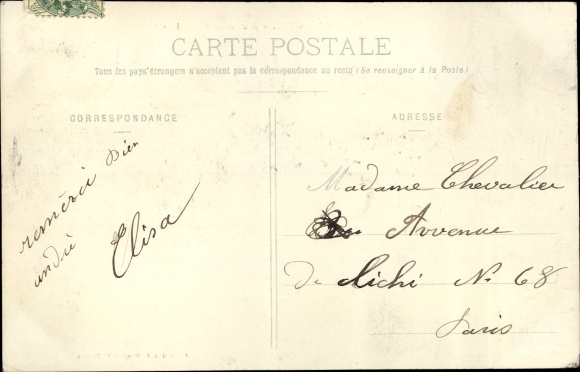 CARTE POSTALE
Tous les pays étrangers n'acceptent pas la correspondance au recto (Se renseigner à la Poste)
CORRESPONDANCE
remerci bien
andré
Elisa
ADRESSE
Madame Chevalier
Avvenue
De Clichi N. 68
Paris